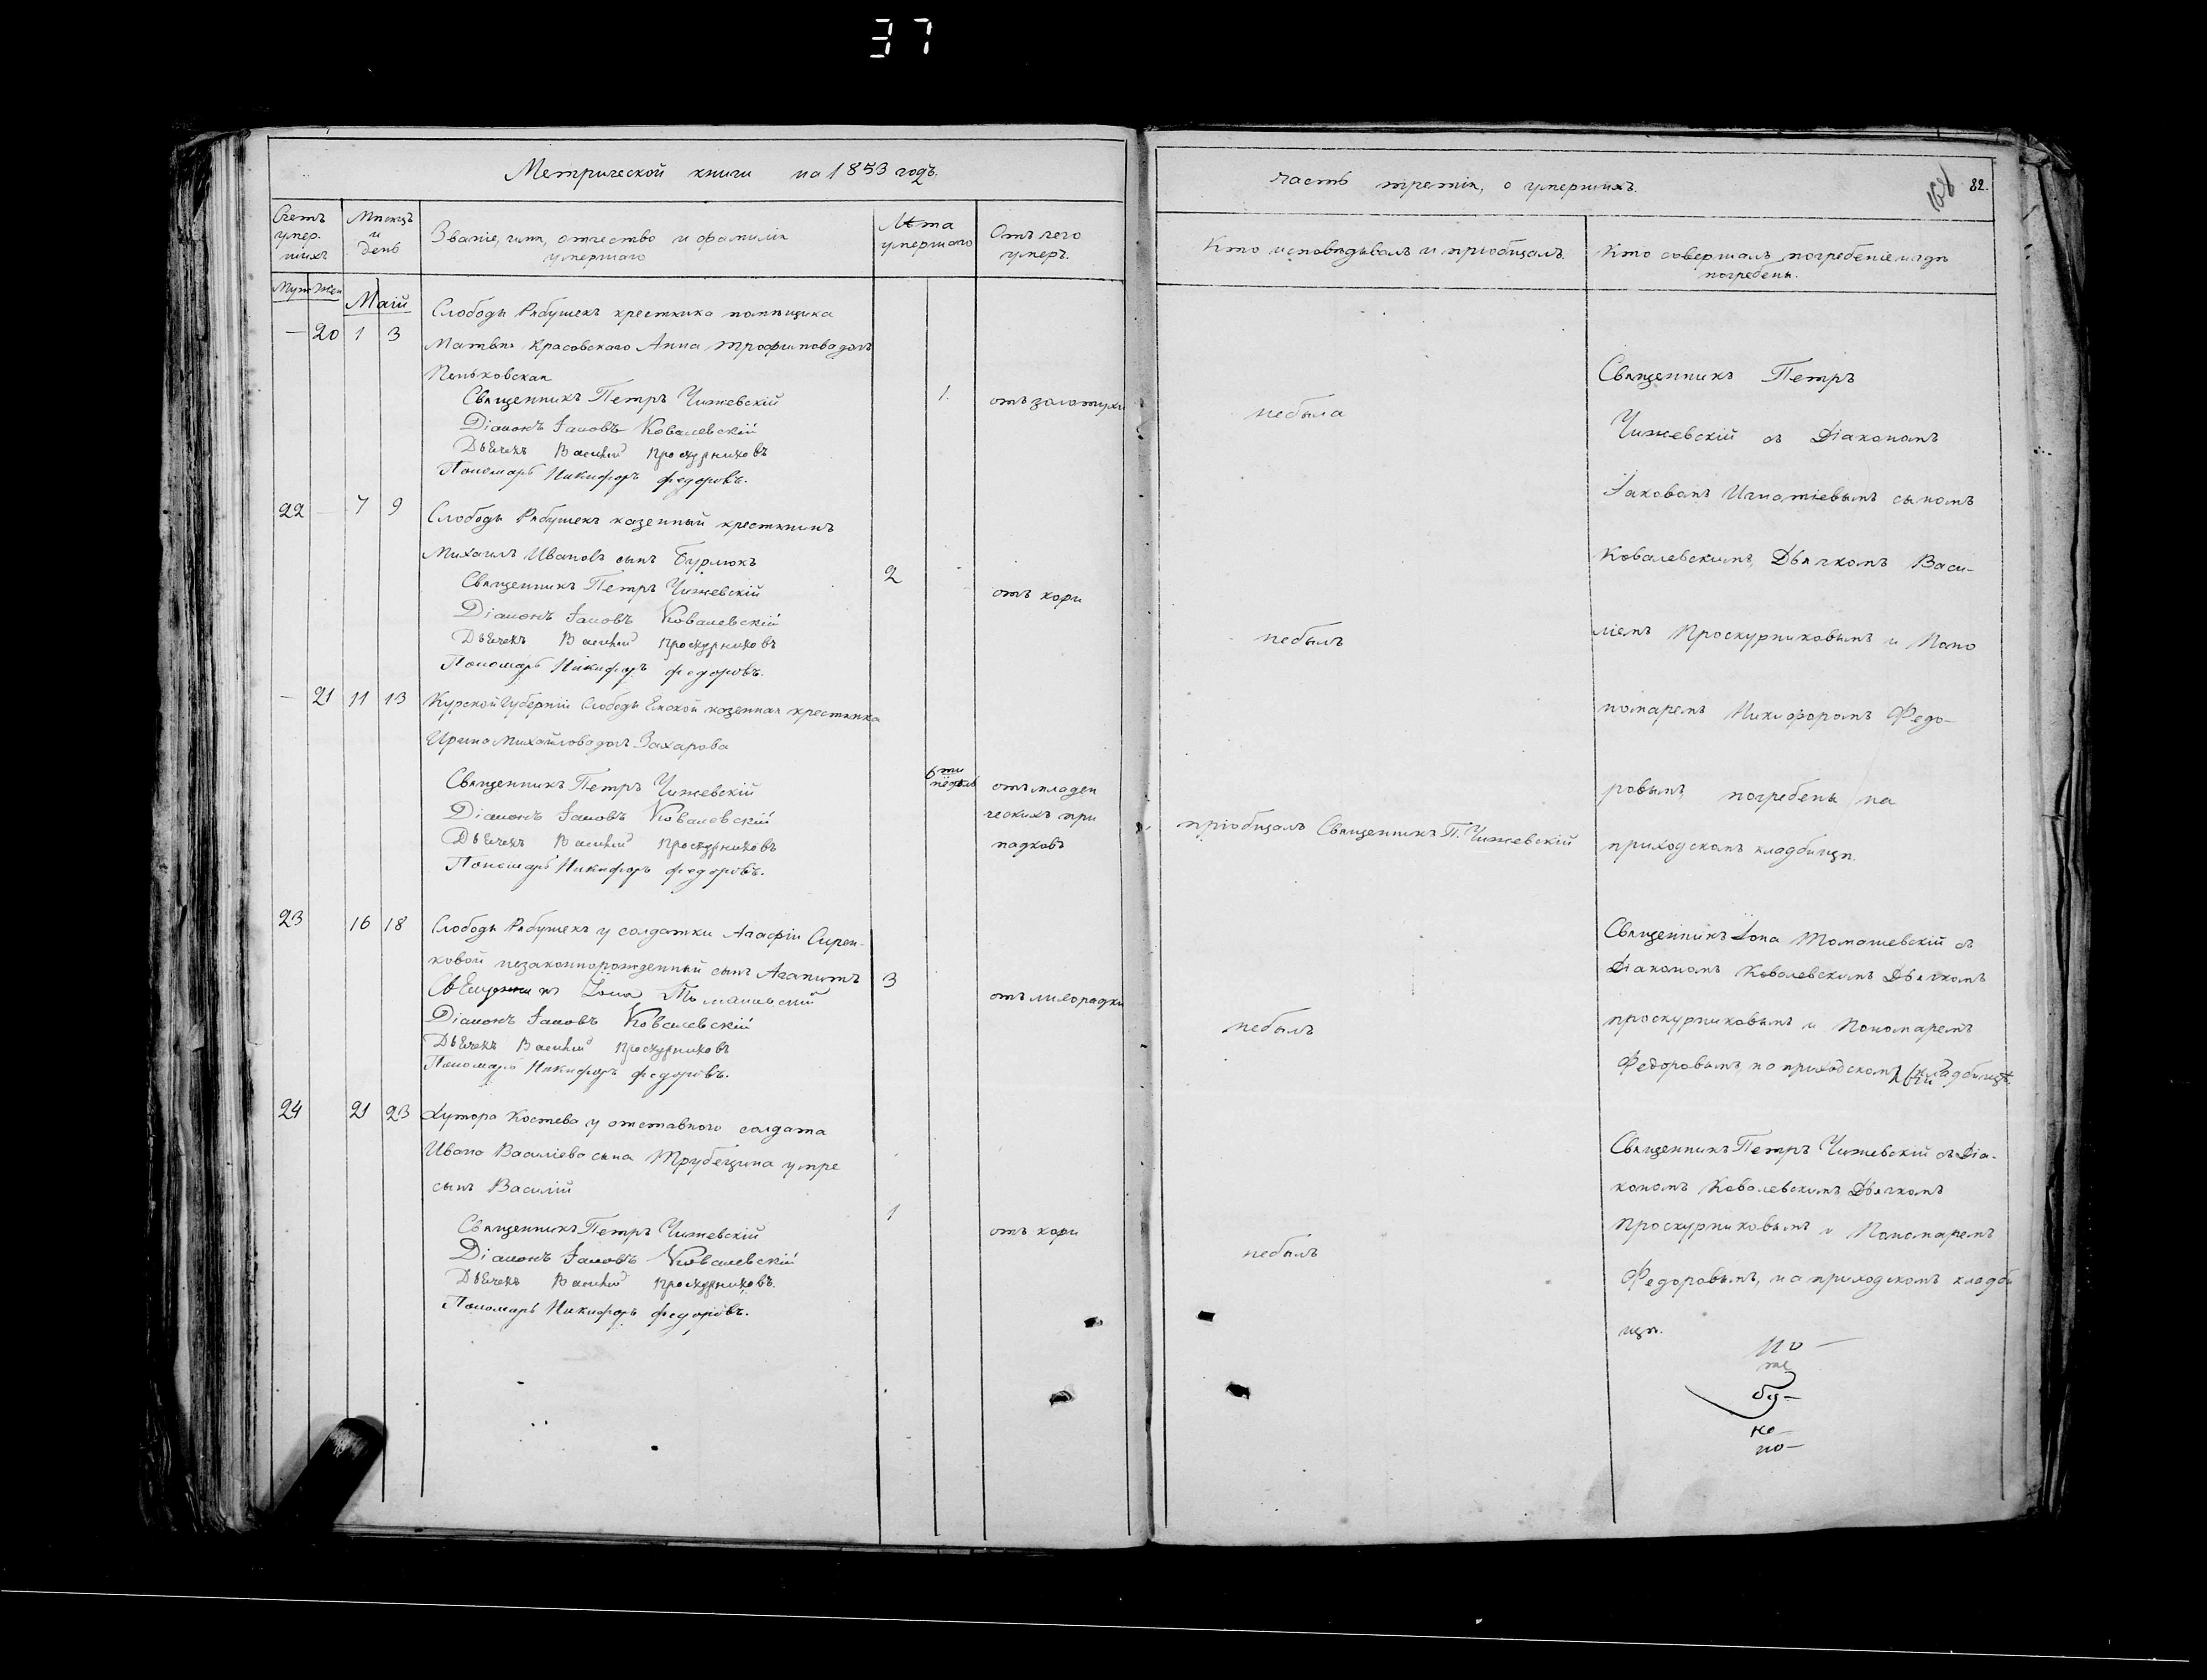 37
Метрической книги на 1853 годъ.
Счетъ умер. шихъ
Мѣсяцъ и день
Званіе, имя, отчество и фамилія умершаго
Лѣта умершаго
Отъ чего умеръ.
Муж Жен
Маій
— 20 1 3
Слободы Рябушекъ крестянка помѣщика
Матвѣя Красовскаго Анна Трофимова дочь
Пеньковская
Священникъ Петръ Чижевскій
1.
отъ золотухи
Діаконъ Іаковъ Ковалевскій
Дьячекъ Василій Проскурниковъ
Пономарь Никифоръ Федоровъ.
22 — 7 9
Слободы Рябушекъ казенный крестянинъ
Михаилъ Ивановъ сынъ Бурлюкъ
2
Священникъ Петръ Чижевскій
отъ кори
Діаконъ Іаковъ Ковалевскій
Дьячекъ Василій Проскурниковъ
Пономарь Никифоръ Федоровъ.
— 21 11 13
Курской Губерніи Слободы Ямской казенная крестянка
Ирина Михайлова дочь Захарова
6ти недѣль
Священникъ Петръ Чижевскій
отъ младен
Діаконъ Іаковъ Ковалевскій
ческихъ при
Дьячекъ Василій Проскурниковъ
падковъ
Пономарь Никифоръ Федоровъ.
23 16 18
Слободы Рябушекъ у солдатки Агафіи Сирен-
ковой незаконнорожденный сынъ Агапитъ
3
Священникъ Іона Томашевскій
отъ лихорадки
Діаконъ Іаковъ Ковалевскій
Дьячекъ Василій Проскурниковъ
Пономарь Никифоръ Федоровъ.
24 21 23
Хутора Костева у отставного солдата
Ивана Василіева сына Трубецина умре
сынъ Василій
1
Священникъ Петръ Чижевскій
отъ кори
Діаконъ Іаковъ Ковалевскій
Дьячекъ Василій Проскурниковъ.
Пономарь Никифоръ Федоровъ.
часть третія, о умершихъ.
168 82.
Кто исповѣдывалъ и пріобщалъ.
Кто совершалъ погребеніе и гдѣ погребены.
небыла
небылъ
пріобщалъ Священникъ П. Чижевскій
небылъ
небылъ
Священникъ Петръ
Чижевскій съ Діакономъ
Іаковомъ Игнатіевымъ сыномъ
Ковалевскимъ, Дьячкомъ Васи-
ліемъ Проскурниковымъ и Поно
номаремъ Никифоромъ Федо-
ровымъ, погребены на
приходскомъ кладбищѣ.
Священникъ Іона Томашевскій съ
Діакономъ Ковалевскимъ Дьячкомъ
проскурниковымъ и Пономаремъ
Федоровымъ, на приходскомъ кладбищѣ.
Священникъ Петръ Чижевскій съ Діа-
кономъ Ковалевскимъ Дьячкомъ
Проскурниковымъ и Пономаремъ
Федоровымъ, на приходскомъ кладби
щѣ.
но-